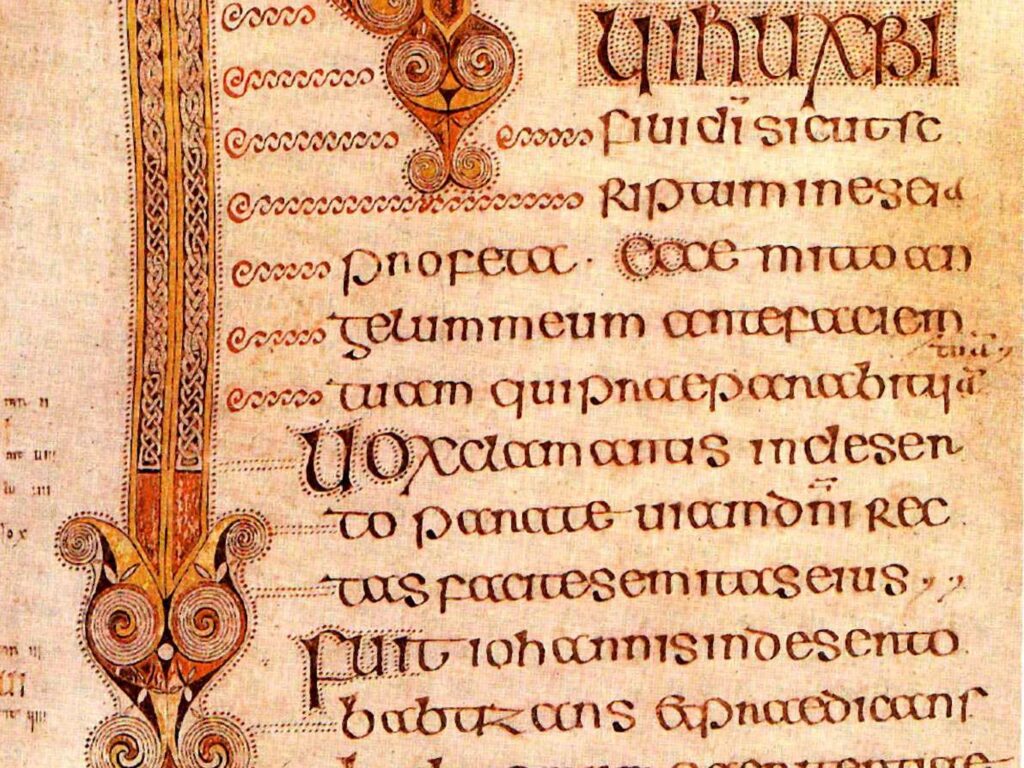 ihu xpi
fili dī sicut sc
riptum in eseia
profeta · ecce mitto an
gelum meum ante faciem
tuā
tuam qui praeparabit uiā
Uox clamantis in deser
to parate uiam dn̄i rec
tas facite semitas eius , ,
Fuit iohannis in deserto
babtizans & praedicans